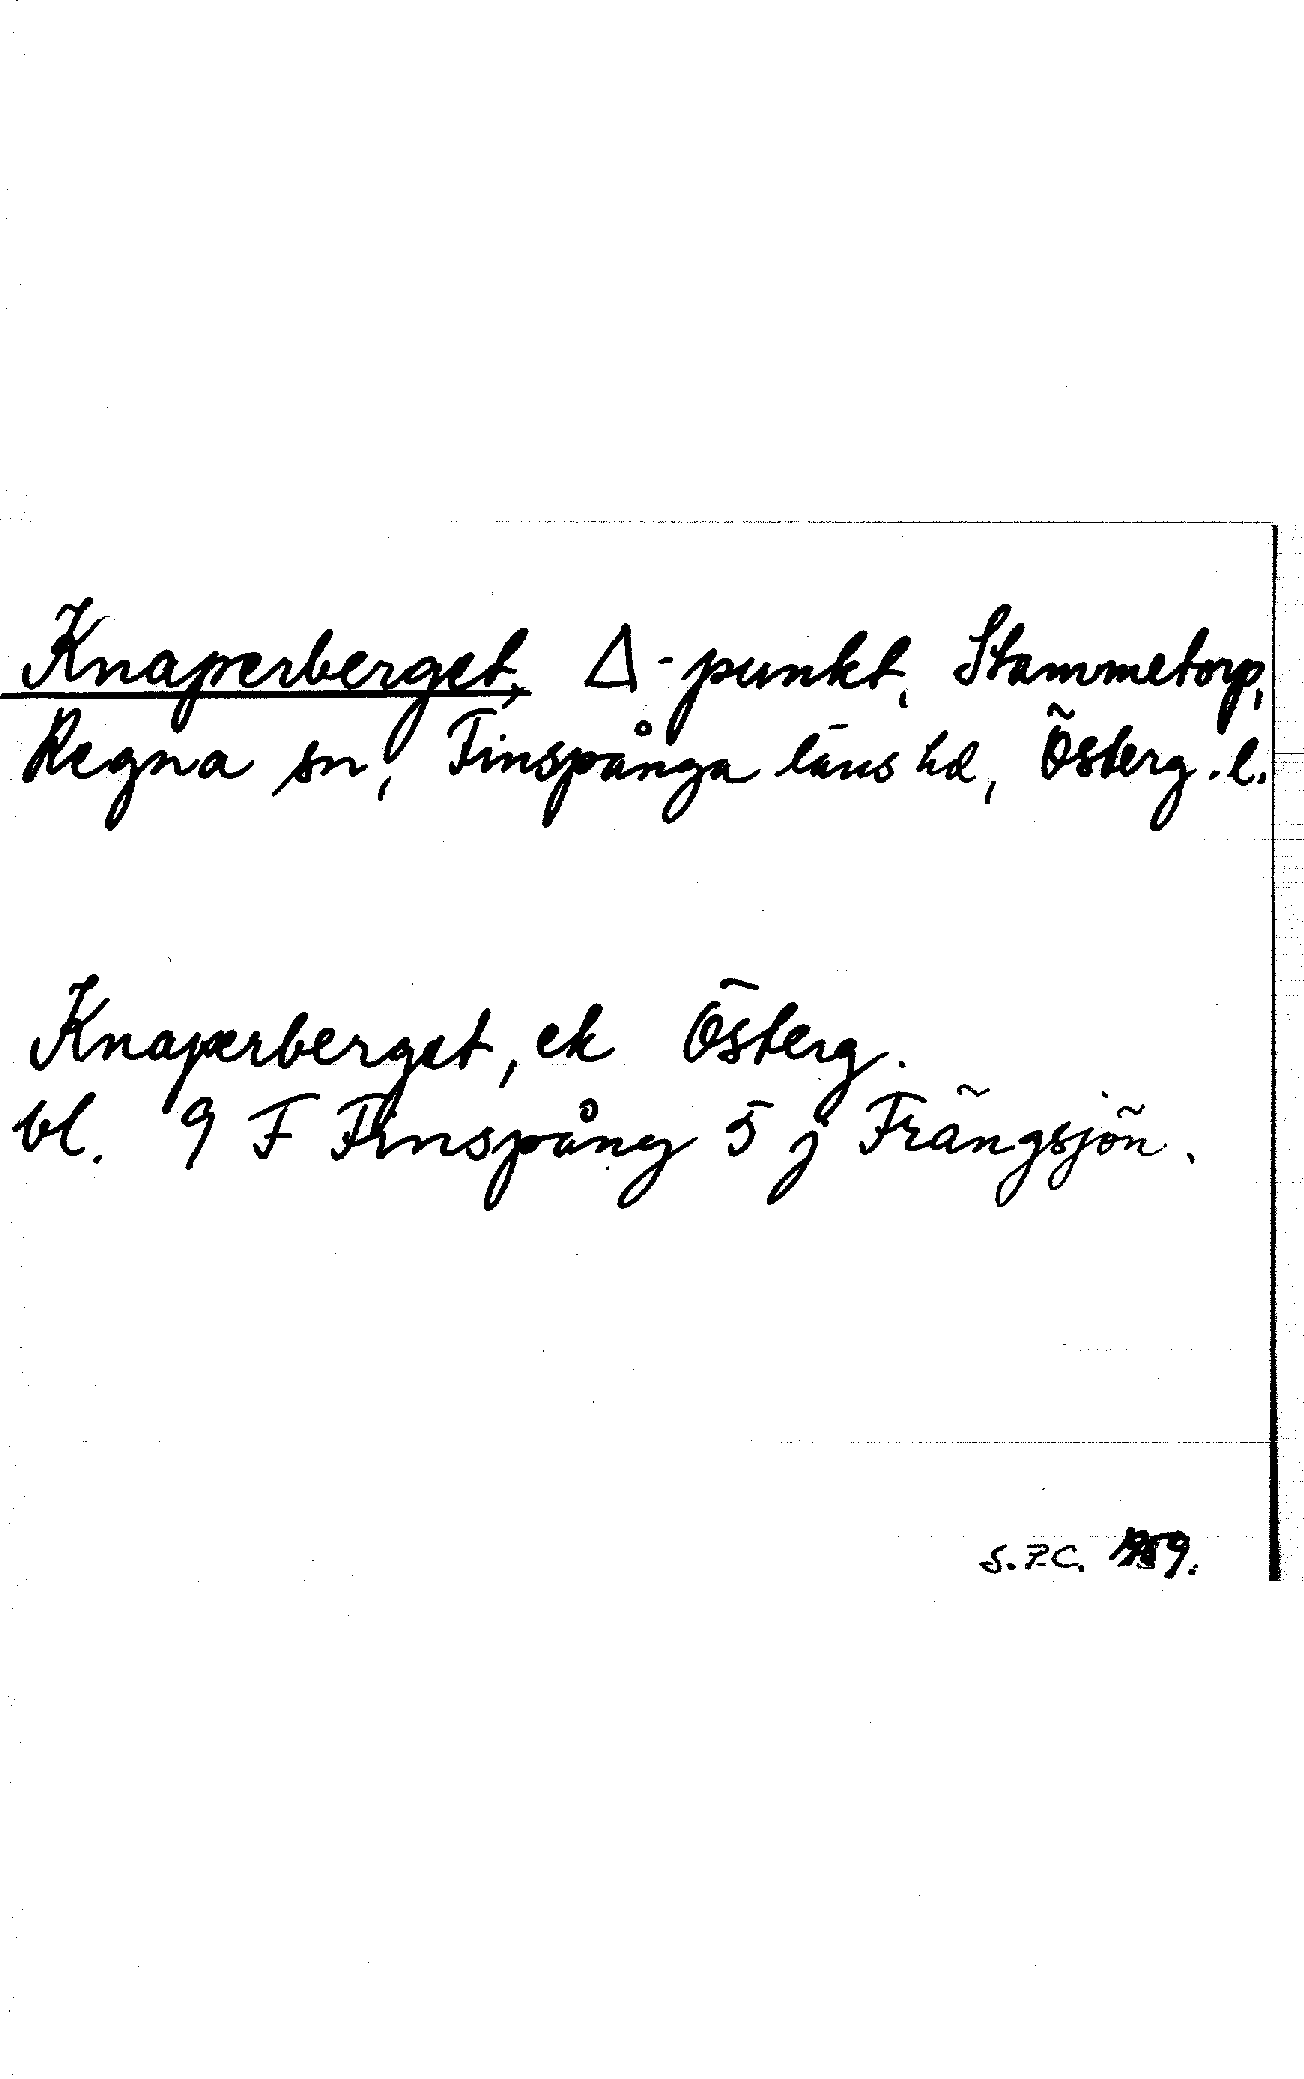 Knaperberget, Δ-punkt, Stammetorp,
Regna sn, Finspånga läns hd, Österg. l.
Knaperberget, ek Österg.
bl. 9 F Finspång 5 j Frängsjön.
S.P.C. 1969.